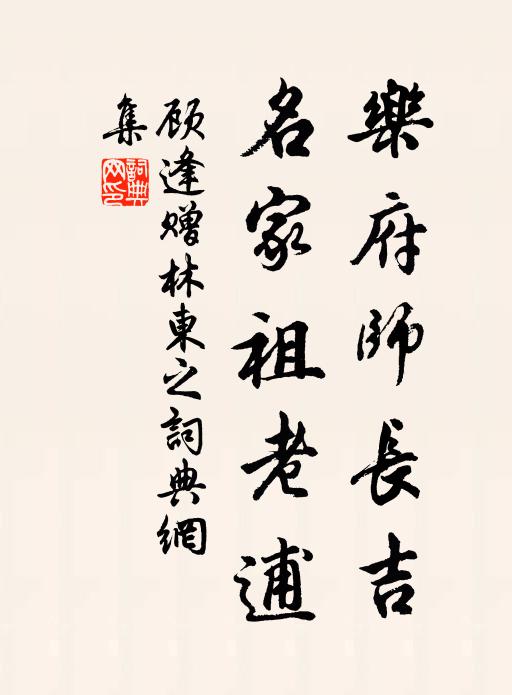 樂府師長吉
名家祖老逋
顾逢赠林東之詞典網
集
詞典網印